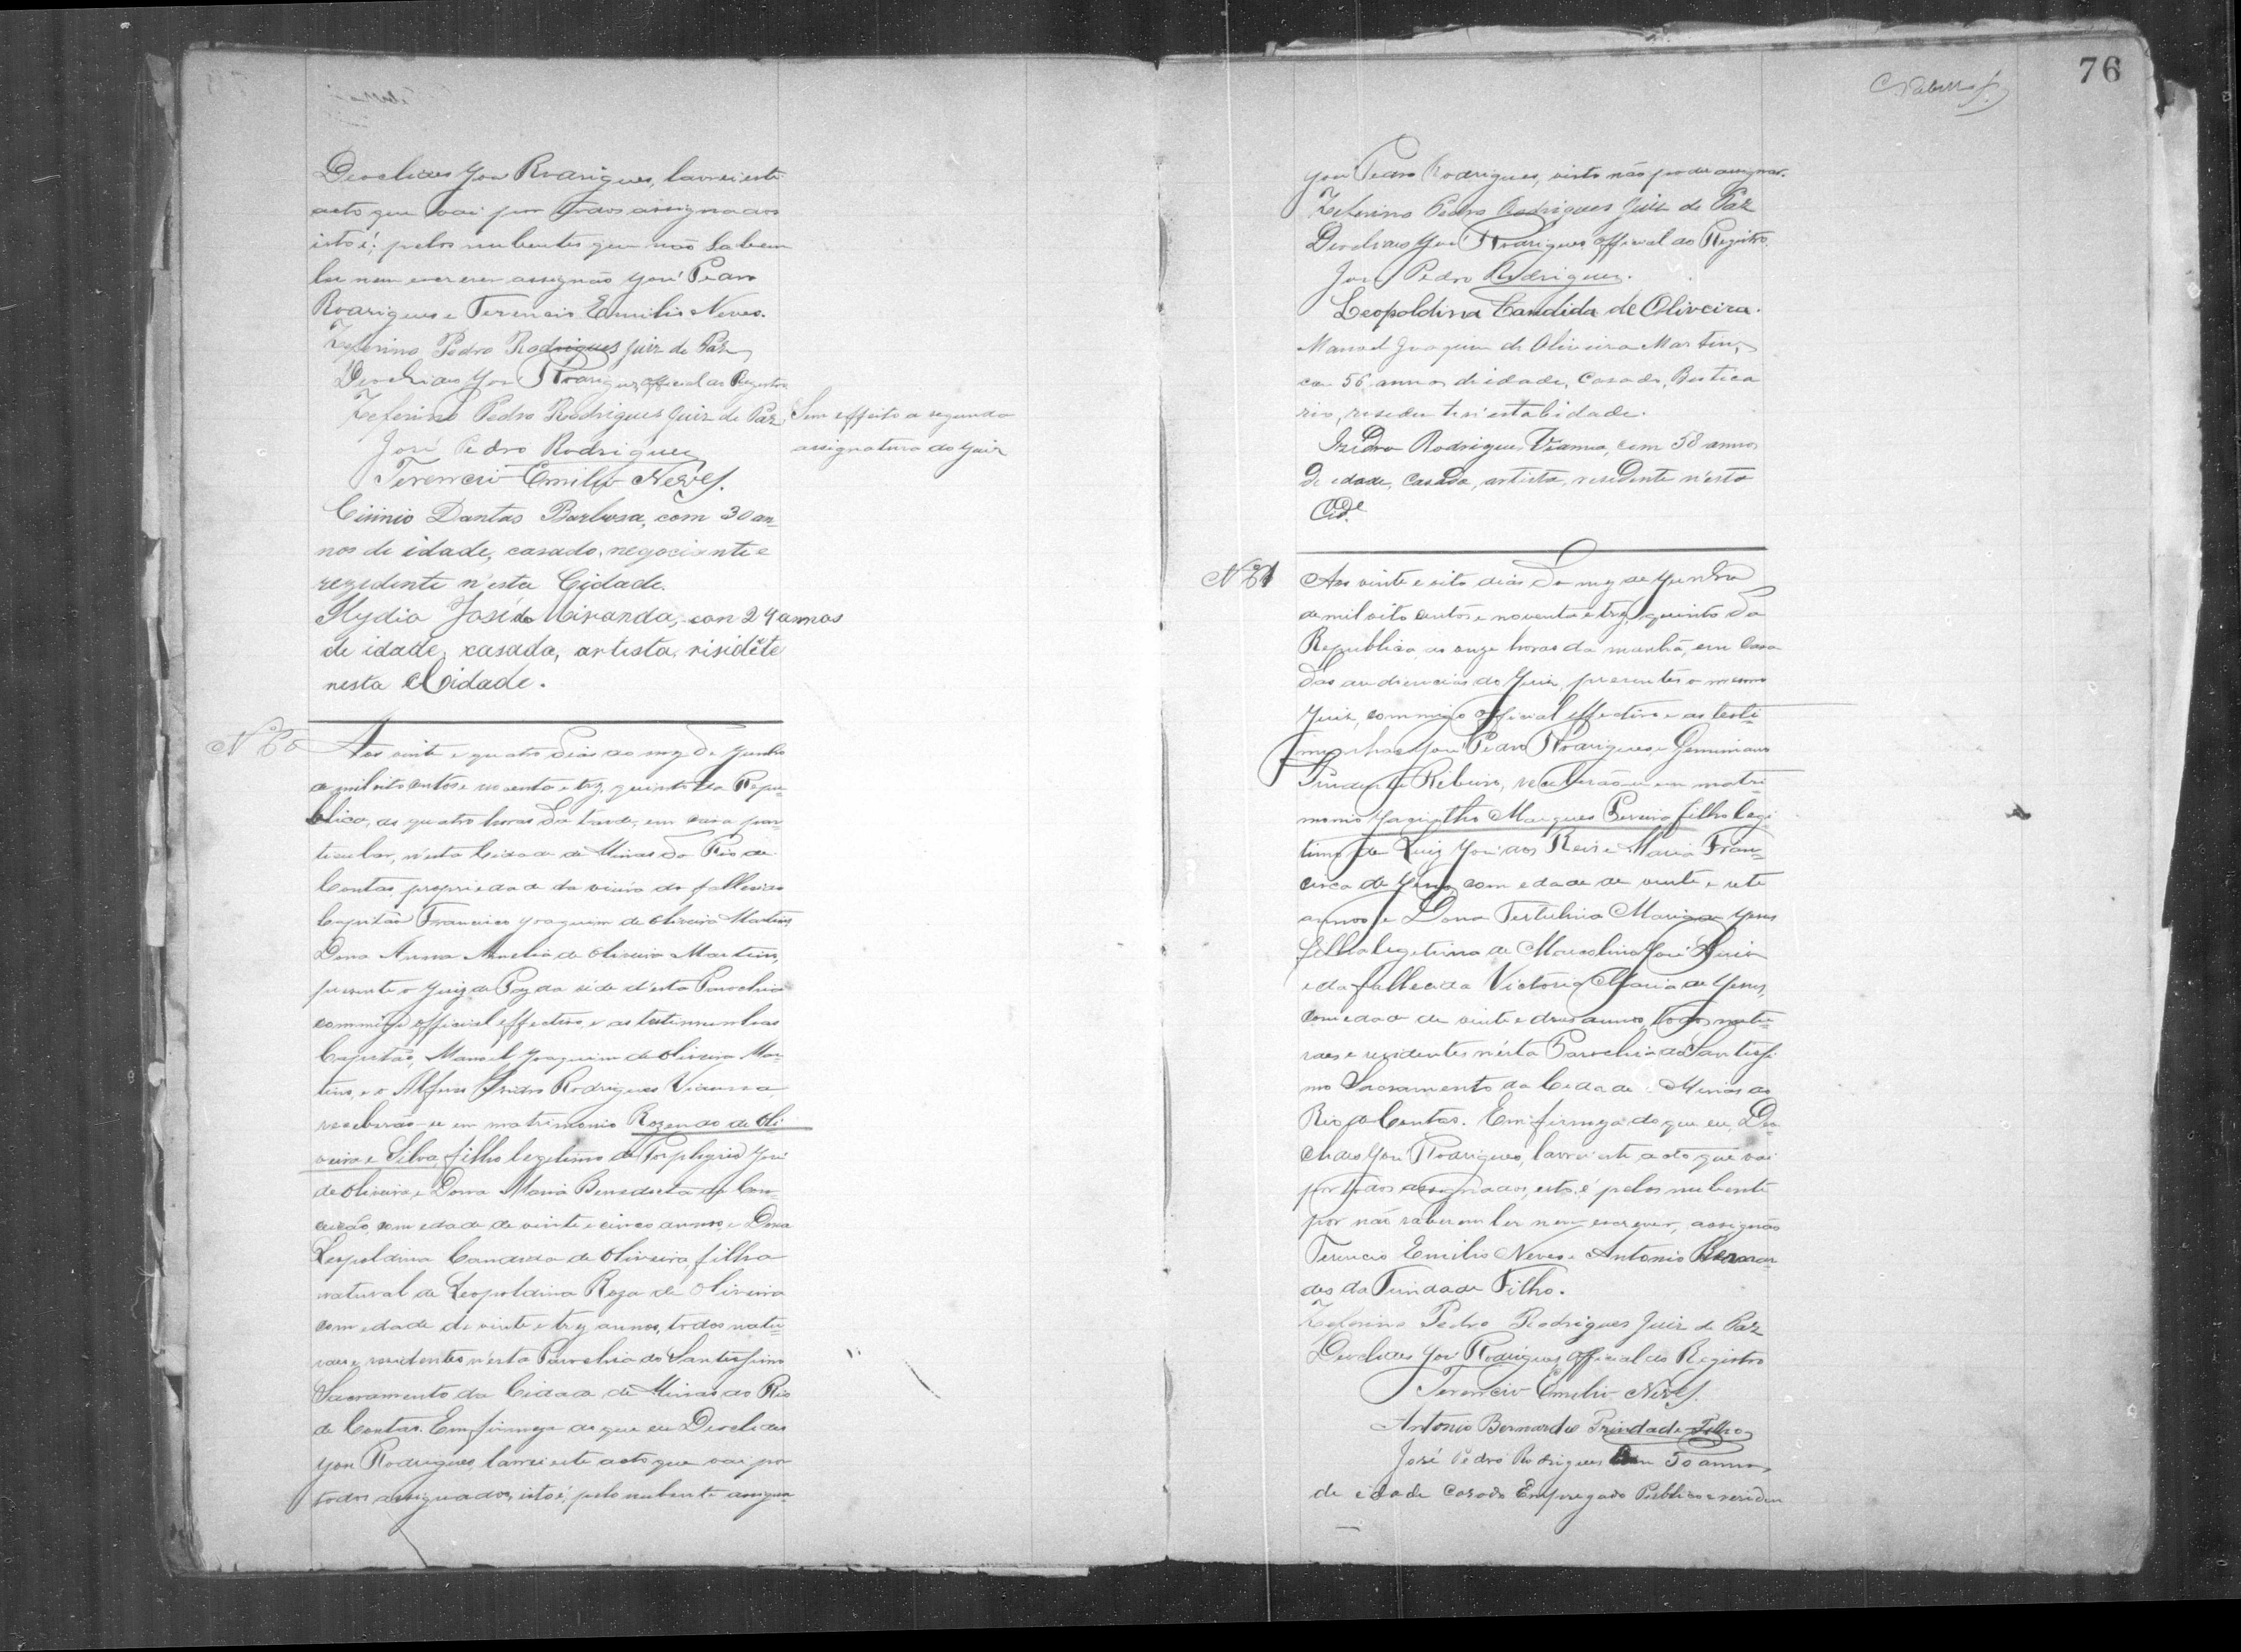 Deoclides José Rodrigues, lavrei este
acto que vai por todos assignados
isto é; pelos nubentes que não sabem
ler nem escrever assignão José Pedro
Rodrigues e Terencio Emilio Neves.
Zeferino Pedro Rodrigues Juiz de Paz
Deoclides José Rodrigues official do Registro
Zeferino Pedro Rodrigues Juiz de Paz
Sem effeito a segunda
assignatura do Juiz
José Pedro Rodrigues
Terencio Emilio Neves.
Cirinio Dantas Barbosa, com 30 an-
nos de idade, casado, negociante e
rezedente n'esta Cidade.
Hydio José de Miranda, con 24 annos
de idade, casado, artista, risidẽte
nesta Cidade.
Aos vinte e quatro dias do mez de Junho
de mil oito centos e noventa e trez, quinto da Repu-
blica, as quatro horas da tarde, em casa par-
ticular, n'esta Cidade de Minas do Rio de
Contas, propriedade da viuva do fallecido
Capitão Francisco Joaquim de Oliveira Martins,
Dona Anna Amelia de Oliveira Martins,
presente o Juiz de Paz da séde d'esta Parochia
commigo official effectivo, e as testimunhas
Capitão, Manoel Joaquim de Oliveira Mar-
tins, e o Alferes Izidro Rodrigues Vianna,
receberão-se em matrimonio Rozendo de Oli-
veira e Silva, filho legitimo de Porphyrio José
de Oliveira e Dona Maria Benedicta da Con-
ceição, com edade de vinte e cinco annos, e Dona
Leopoldina Candida de Oliveira, filha
natural de Leopoldina Roza de Oliveira
com edade de vinte e trez annos, todos natu-
raes e residentes n'esta Parochia do Santissimo
Sacramento da Cidade de Minas do Rio
de Contas. Em firmeza do que eu Deoclides
José Rodrigues, lavrei este acto que vai por
todos assignados, isto é; pelo nubente assigna
76
José Pedro Rodrigues, visto não poder assignar.
Zeferino Pedro Rodrigues Juiz de Paz
Deoclides José Rodrigues official do Registro.
José Pedro Rodrigues.
Leopoldina Candida de Oliveira.
Manoel Joaquim de Oliveira Martins,
com 56 annos de idade, Casado, Botica
rio, residente n'esta Cidade.
Izidro Rodrigues Vianna, com 58 annos
de edade, Casado, artista, residente n'esta
Cide.
Aos vinte e oito dias do mez de Junho
de mil oito centos e noventa e trez, quinto da
Republica, as onze horas da manhã, em casa
das audiencias do Juiz, presentes o mesmo
Juiz, commigo official effectivo e as testi-
munhas José Pedro Rodrigues e Geminiano
Ribeiro, receberão-se em matri-
monio Jacintho Marques Pereira, filho legi-
timo de Luiz José dos Reis e Maria Fran-
cisca de Jesus, com edade de vinte e sete
annos, e Dona Tertulina Maria de Jesus
filha legitima de Marcolino José
e da fallecida Victoria Maria de Jesus,
com edade de vinte e dous annos, todos natu-
raes e residentes n'esta Parochia do Santissi-
mo Sacramento da Cidade de Minas do
Rio de Contas. Em firmeza do que eu, Deo-
clides José Rodrigues, lavrei este acto que vai
por todos assignados, isto é pelos nubente
por não saberem ler nem escrever, assignão
Terencio Emilio Neves e Antonio Bernar-
des da Trindade Filho.
Zeferino Pedro Rodrigues Juiz de Paz
Deoclides José Rodrigues official do Registro
Terencio Emilio Neves.
Antonio Bernardes Trindade Filho
José Pedro Rodrigues com annos
de idade Casado Empregado Publico e residen